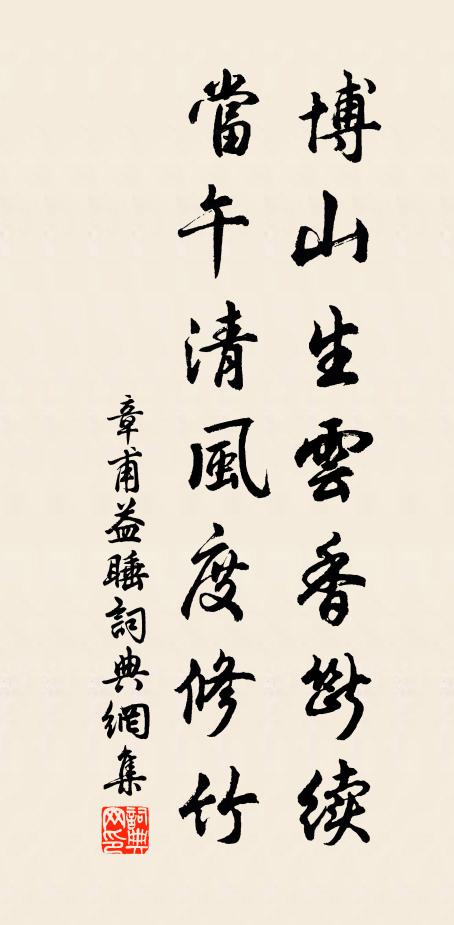 博山生雲香斷续
當午清風度修竹
章甫益睡詞典網集
詞典网印